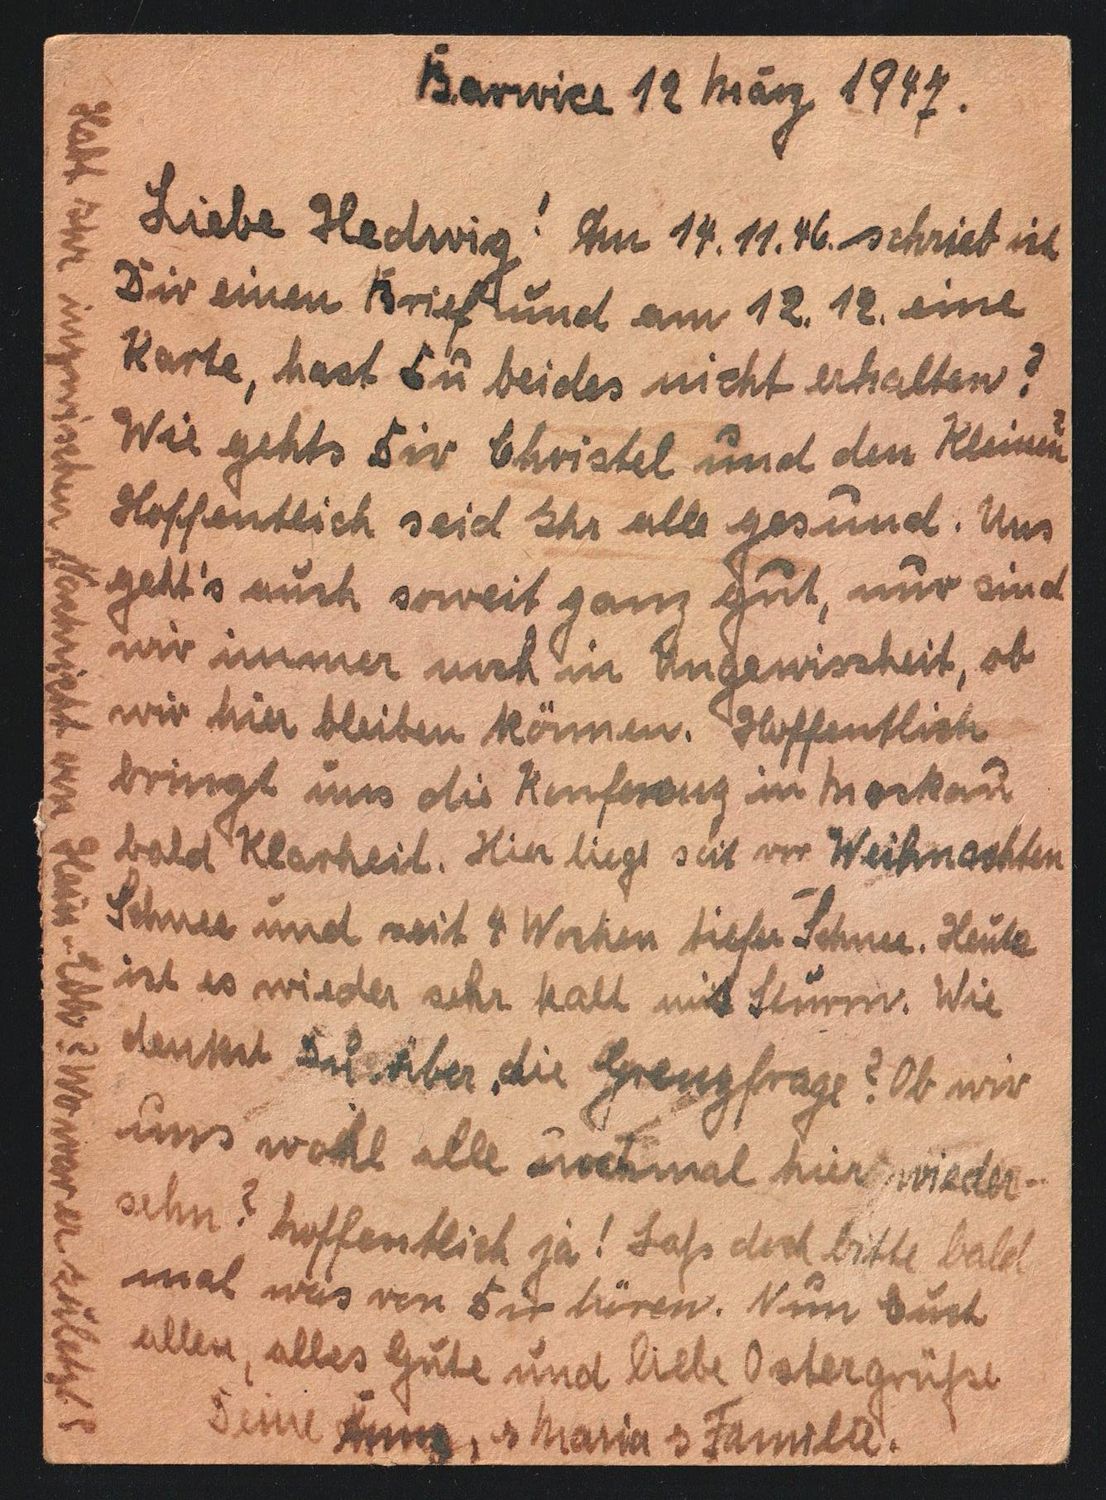 Barwice 12 März 1947.
Liebe Hedwig! Am 14.11.46. schrieb ich
Dir einen Brief und am 12.12. eine
Karte, hast Du beides nicht erhalten?
Wie gehts Dir Christel und den Kleinen?
Hoffentlich seid Ihr alle gesund. Uns
geht's auch soweit ganz gut, nur sind
wir immer noch in Ungewissheit, ob
wir hier bleiben können. Hoffentlich
bringt uns die Konferenz in Moskau
bald Klarheit. Hier liegt seit vor Weihnachten
Schnee und seit 4 Wochen tiefer Schnee. Heute
ist es wieder sehr kalt mit Sturm. Wie
denkst Du über die Grenzfrage? Ob wir
uns wohl alle nochmal hier wieder-
sehn? hoffentlich ja! Laß doch bitte bald
mal was von Dir hören. Nun Euch
allen, alles Gute und liebe Ostergrüße
Deine Maria Familie.
Habt Ihr inzwischen Nachricht von ? Wo war er zuletzt?